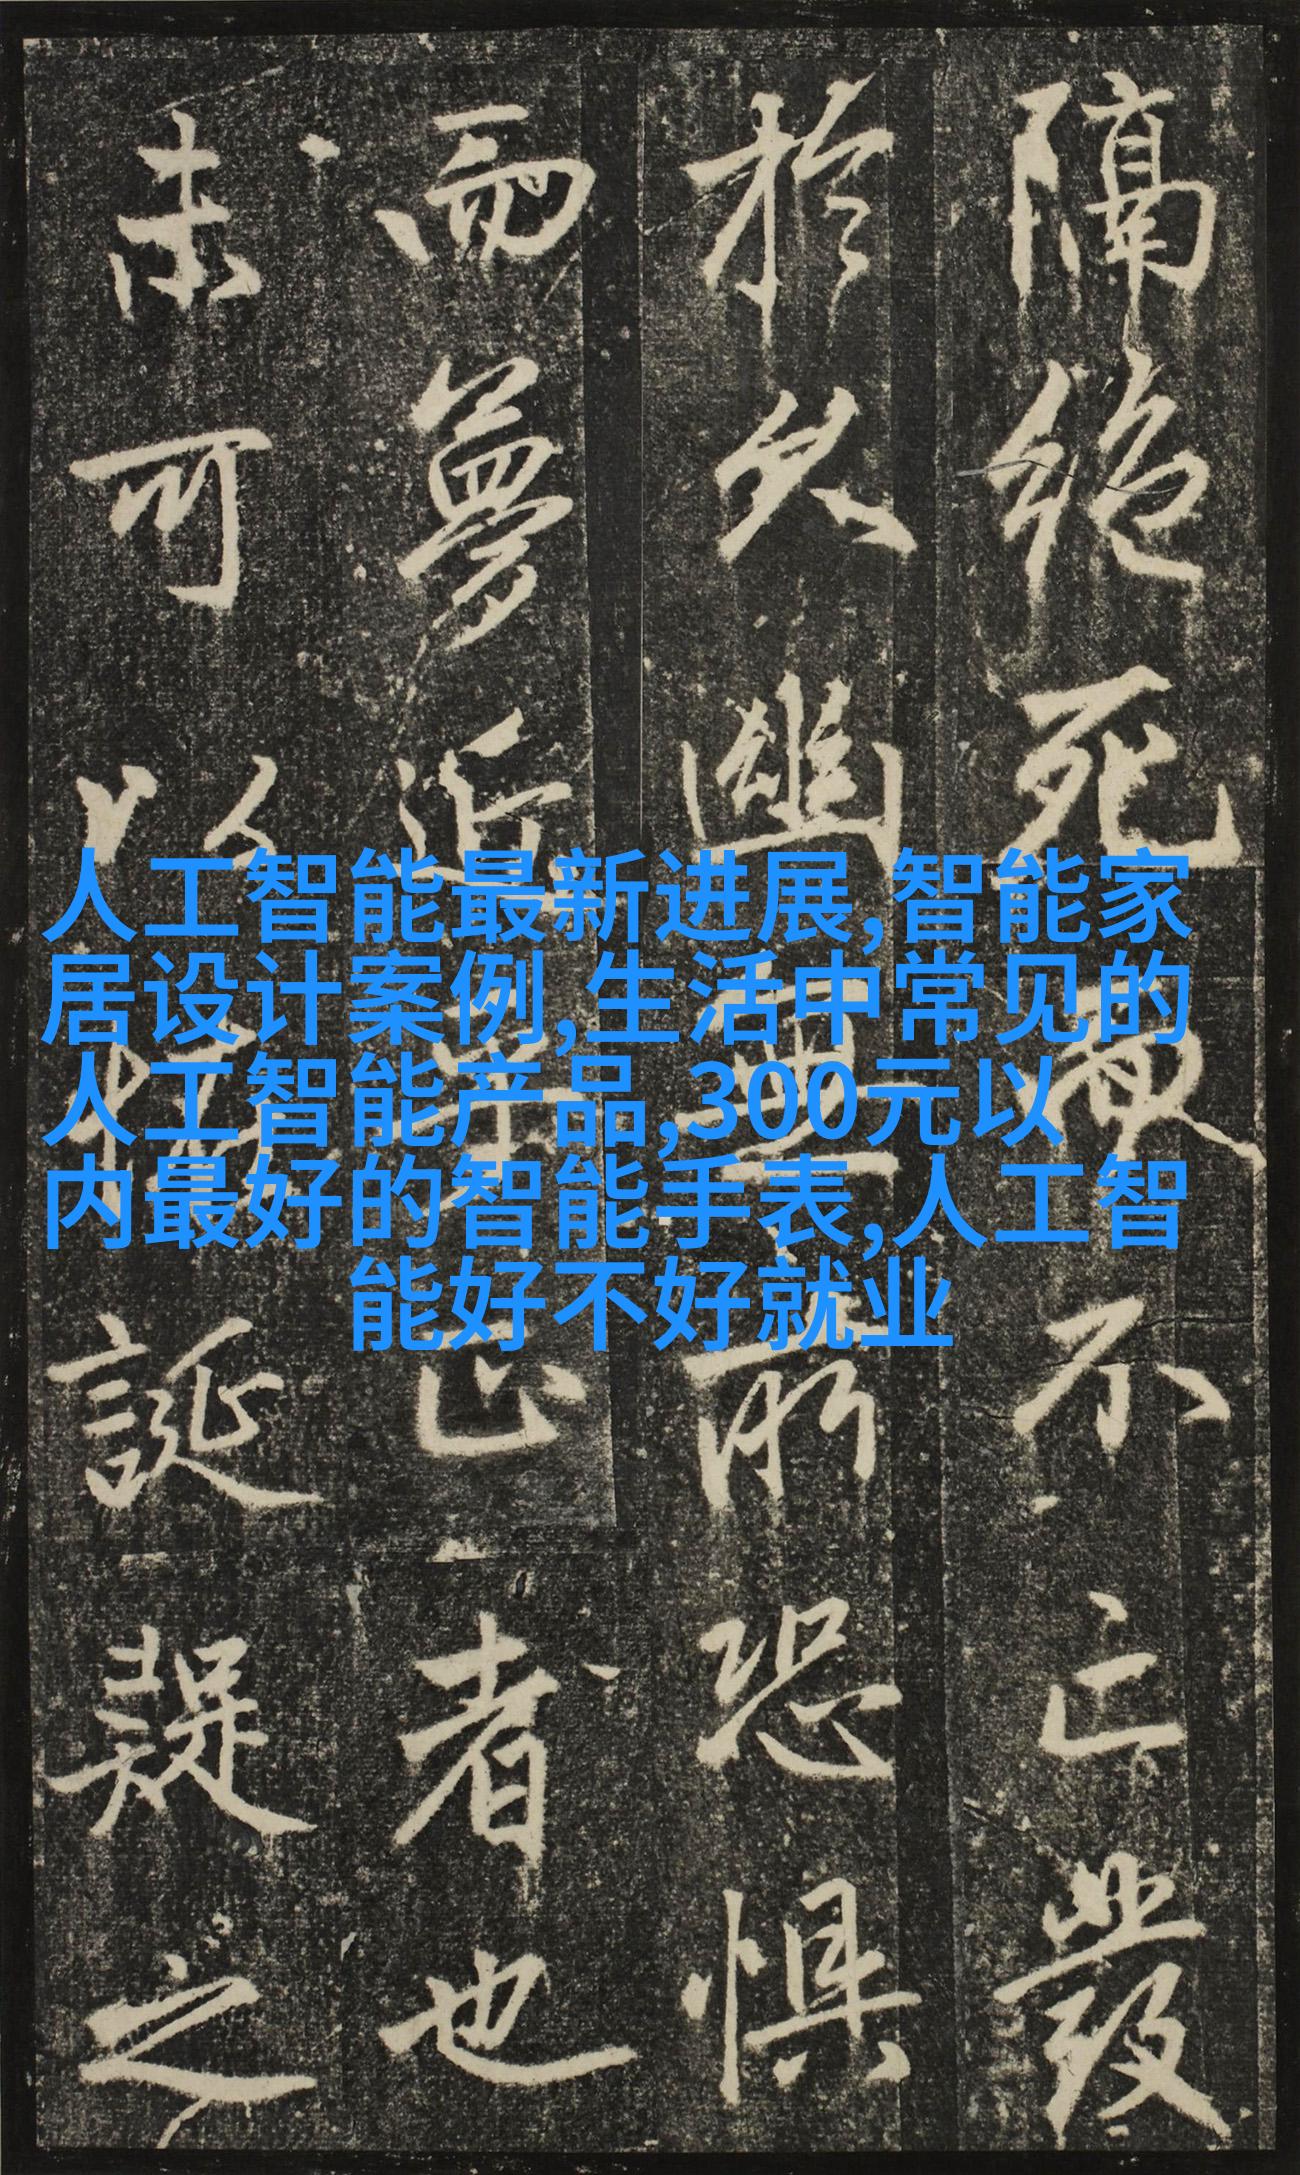 隔絶死不亡發
於久幽所恐懼
而夢近正者也
未可以怪誕疑之
人工智能最新进展,智能家
居设计案例,生活中常见的
人工智能产品,300元以
内最好的智能手表,人工智
能好不好就业